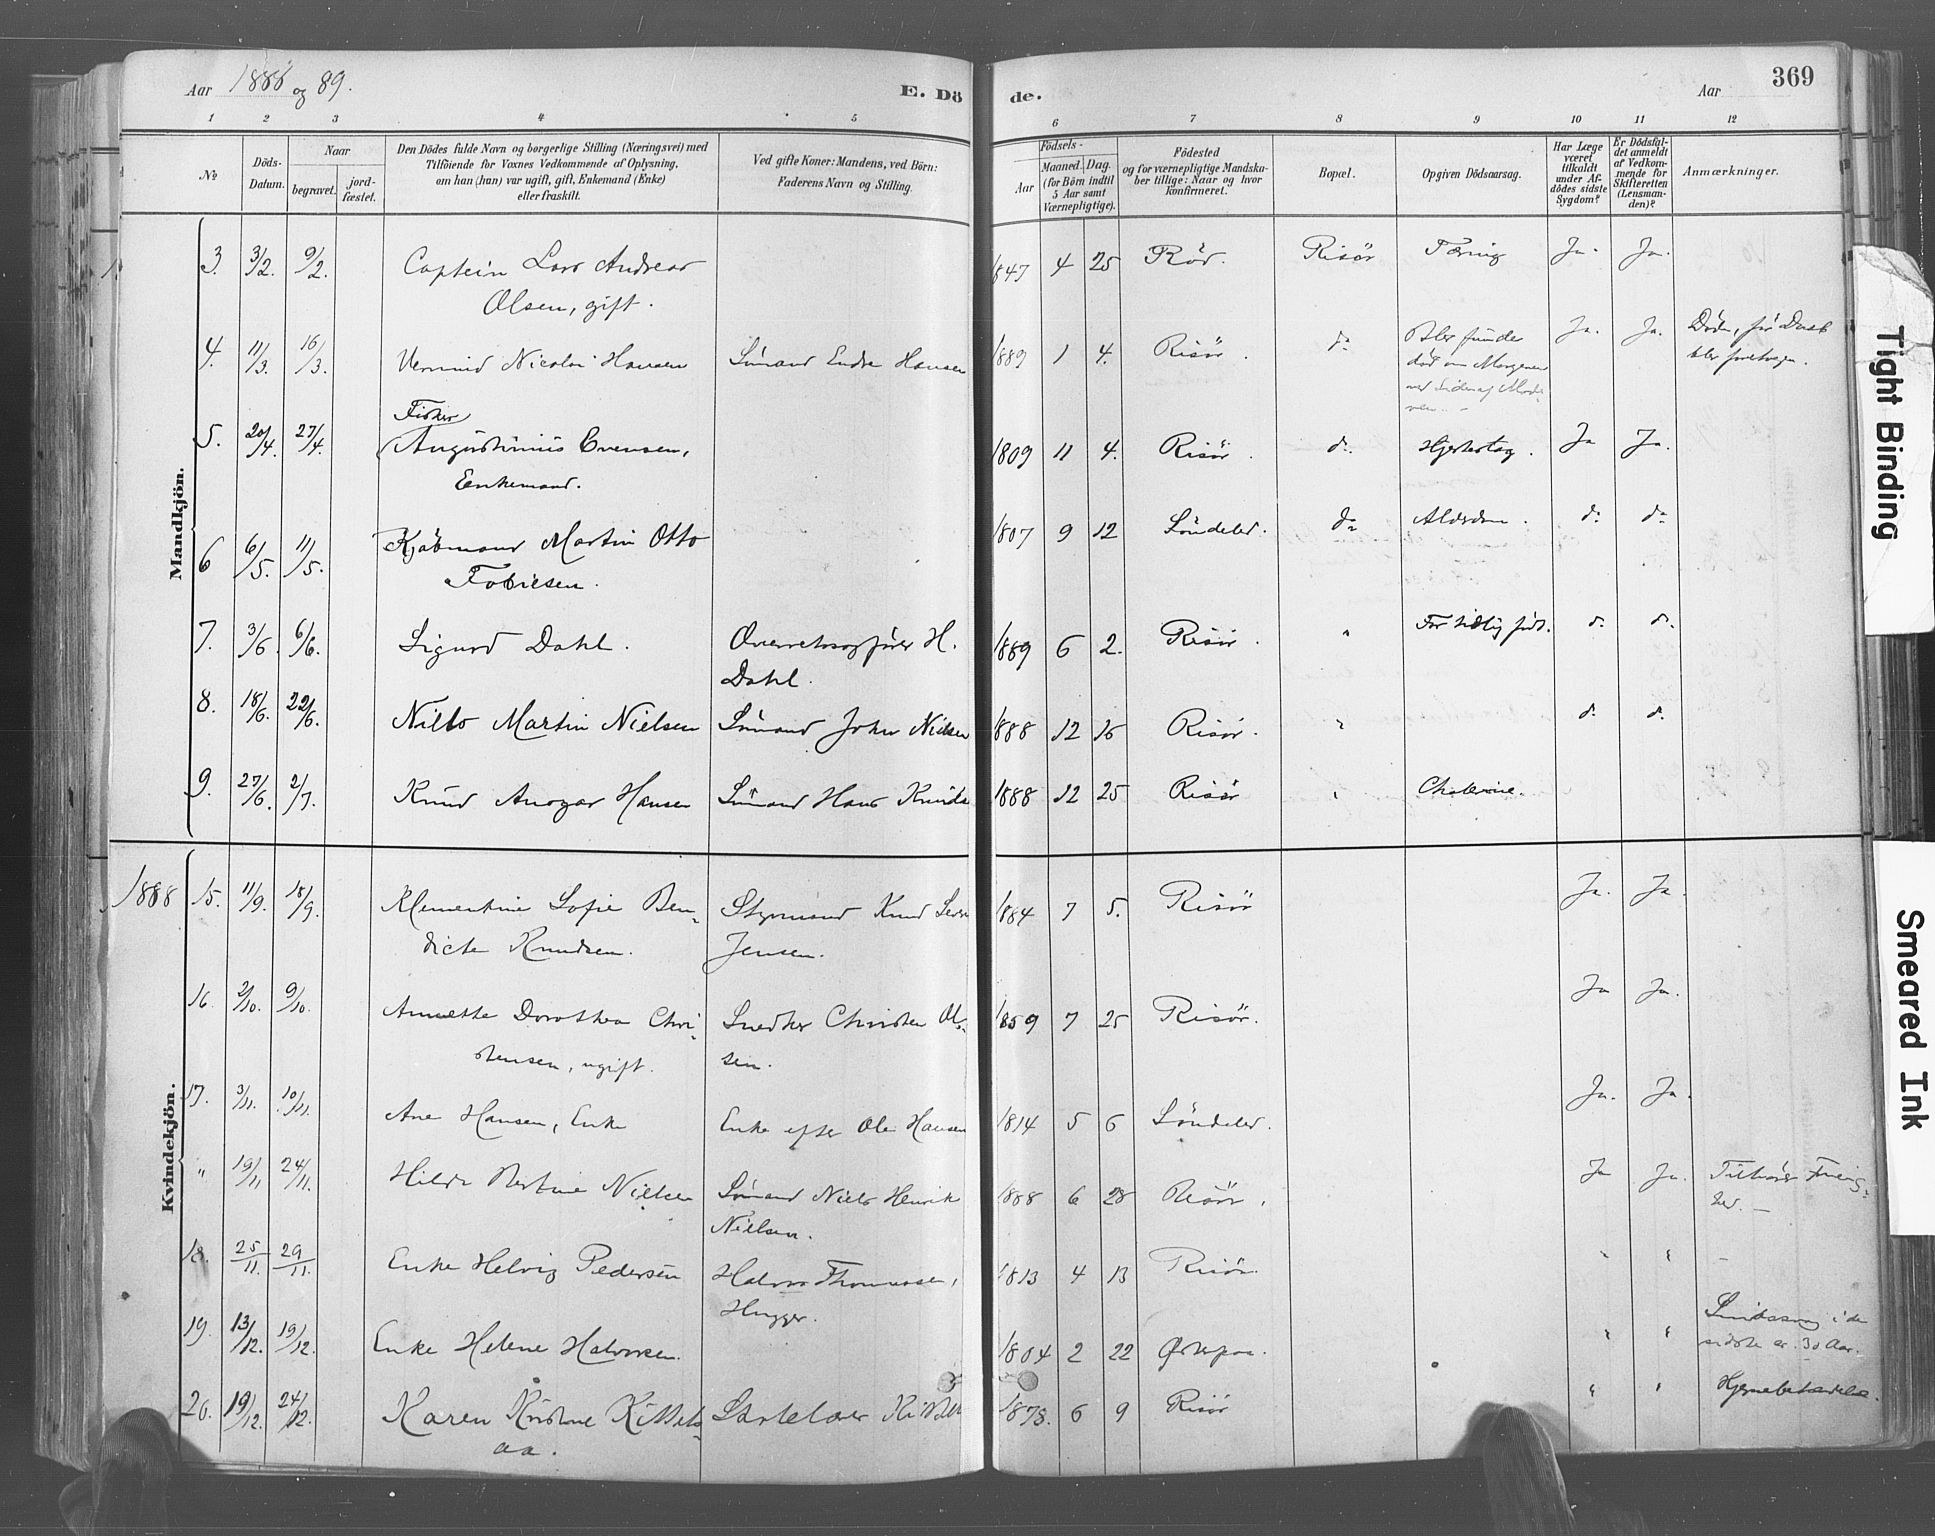 Aar 1888 og 89.
E. Dö de.
Aar
369
1 2 3 4 5 6 7 8 9 10 11 12
№
Döds-
Datum.
Naar
begravet.
jord-
fæstet.
Den Dödes fulde Navn og borgerlige Stilling (Næringsvei) med
Tilföiende for Voxnes Vedkommende af Oplysning,
om han (hun) var ugift, gift, Enkemand (Enke)
eller fraskilt.
Ved gifte Koner: Mandens, ved Börn:
Faderens Navn og Stilling.
Födsels-
Aar
Maaned. Dag.
(for Börn indtil
5 Aar samt
Værnepligtige).
Födested
og for værnepligtige Mandska-
ber tillige: Naar og hvor
konfirmeret.
Bopæl.
Opgiven Dödsaarsag.
Har Læge
været
tilkaldt
under Af-
dödes sidste
Sygdom?
Er Dödsfal-
det anmeldt
af Vedkom-
mende for
Skifteretten
(Lensman-
den)?
Anmærkninger.
Mandkjön.
3. 3/2. 9/2. Captein Lars Andreas 1847 4 25 Risör Tæring Ja. Ja.
Olsen, gift.
4. 11/3. 16/3. Nicolai Hansen Sömand Endre Hansen 1889 1 4. Risör. do Blev funden Ja. Ja. Döde, för Daab
död om Morgenen blev foretagen.
ved Siden af
5. 20/4. 27/4. Fisker
Augustinus Evensen, 1809 11 4. Risör. do. Hjerteslag. Ja Ja.
Enkemand.
6 6/5. 11/5. Kjöbmand Martin Otto 1807 9 12 Söndeled. do Alderdom. do do
Tobiesen.
7. 3/6. 6/6. Sigurd Dahl. Overretssagförer H. 1889 6 2. Risör. " For tidlig födt. do. do.
Dahl.
8. 18/6. 22/6. Nils Martin Nielsen Sömand John Nielsen 1888 12 16 Risör. " do do
9. 27/6. 2/7. Knud Ansgar Hansen Sömand Hans 1888 12 25 Risör " Cholerine.
Kvindekjön.
1888 15. 11/9. 18/9. Klementine Sofie Ben- Styrmand Knud 1884 7 5. Risör Ja. Ja.
dicte Knudsen. Jensen.
16. 2/10. 9/10. Annette Dorothea Chri- Snedker Christen Ol- 1859 7 25 Risör. Ja Ja.
stensen, ugift. sen.
17. 3/11. 10/11. Ane Hansen, Enke Enke efter Ole Hansen 1814 5 6 Söndeled. Ja. Ja.
" 19/11 24/11. Hilda Bertine Nielsen Sömand Niels Henrik 1888 6 28 Risör. Ja Ja.
Nielsen.
18. 25/11. 29/11. Enke Helvig Pedersen Halvor Thomassen, 1813 4 13 Risör. " " "
Hugger.
19. 13/12. 19/12. Enke Helene Halvorsen. 1804 2 22 " " Sindssvag i de
sidste 30 Aar.
20. 19/12. 24/12. Karen Kristine Kittels- 1878. 6 9 Risör " " Hjernebetændelse.
aa.
Tight Binding
Smeared Ink